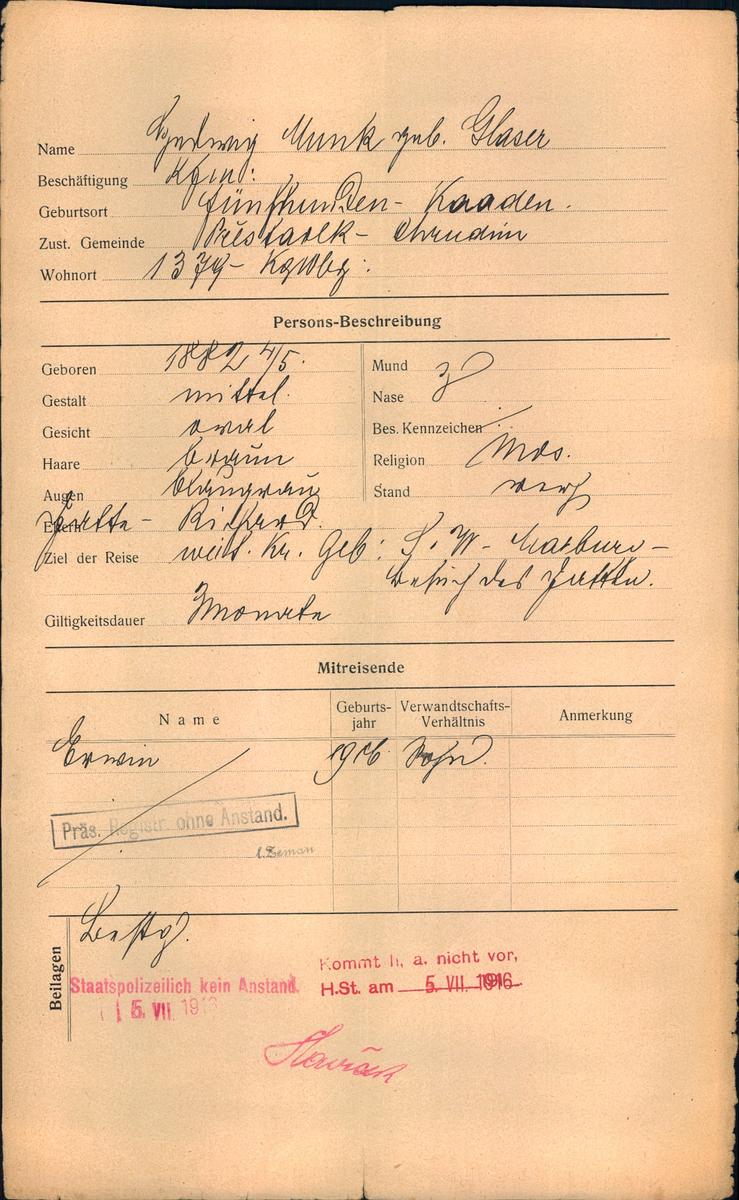 Name Hedwig Munk geb. Glaser
Beschäftigung Kfm:
Geburtsort Fünfhunden - Kaaden.
Zust. Gemeinde Přestavlk - Chrudim
Wohnort 1379 - KglWbg:
Persons-Beschreibung
Geboren 1882 4/5.
Gestalt mittel.
Gesicht oval
Haare braun
Augen blaugrau
Mund
Nase
Bes. Kennzeichen
Religion mos.
Stand verh
Gatte - Richard.
Ziel der Reise weit. Kr. Geb: S. W. - Marburg -
Besuch des Gatten.
Giltigkeitsdauer 3 Monate
Mitreisende
Name
Geburts-
jahr
Verwandtschafts-
Verhältnis
Anmerkung
Erwin 1906 Sohn.
Präs. Registr. ohne Anstand.
Zeman
Beilagen
Bestg.
Staatspolizeilich kein Anstand.
5. VII. 191
Kommt h. a. nicht vor,
H.St. am 5. VII. 1916